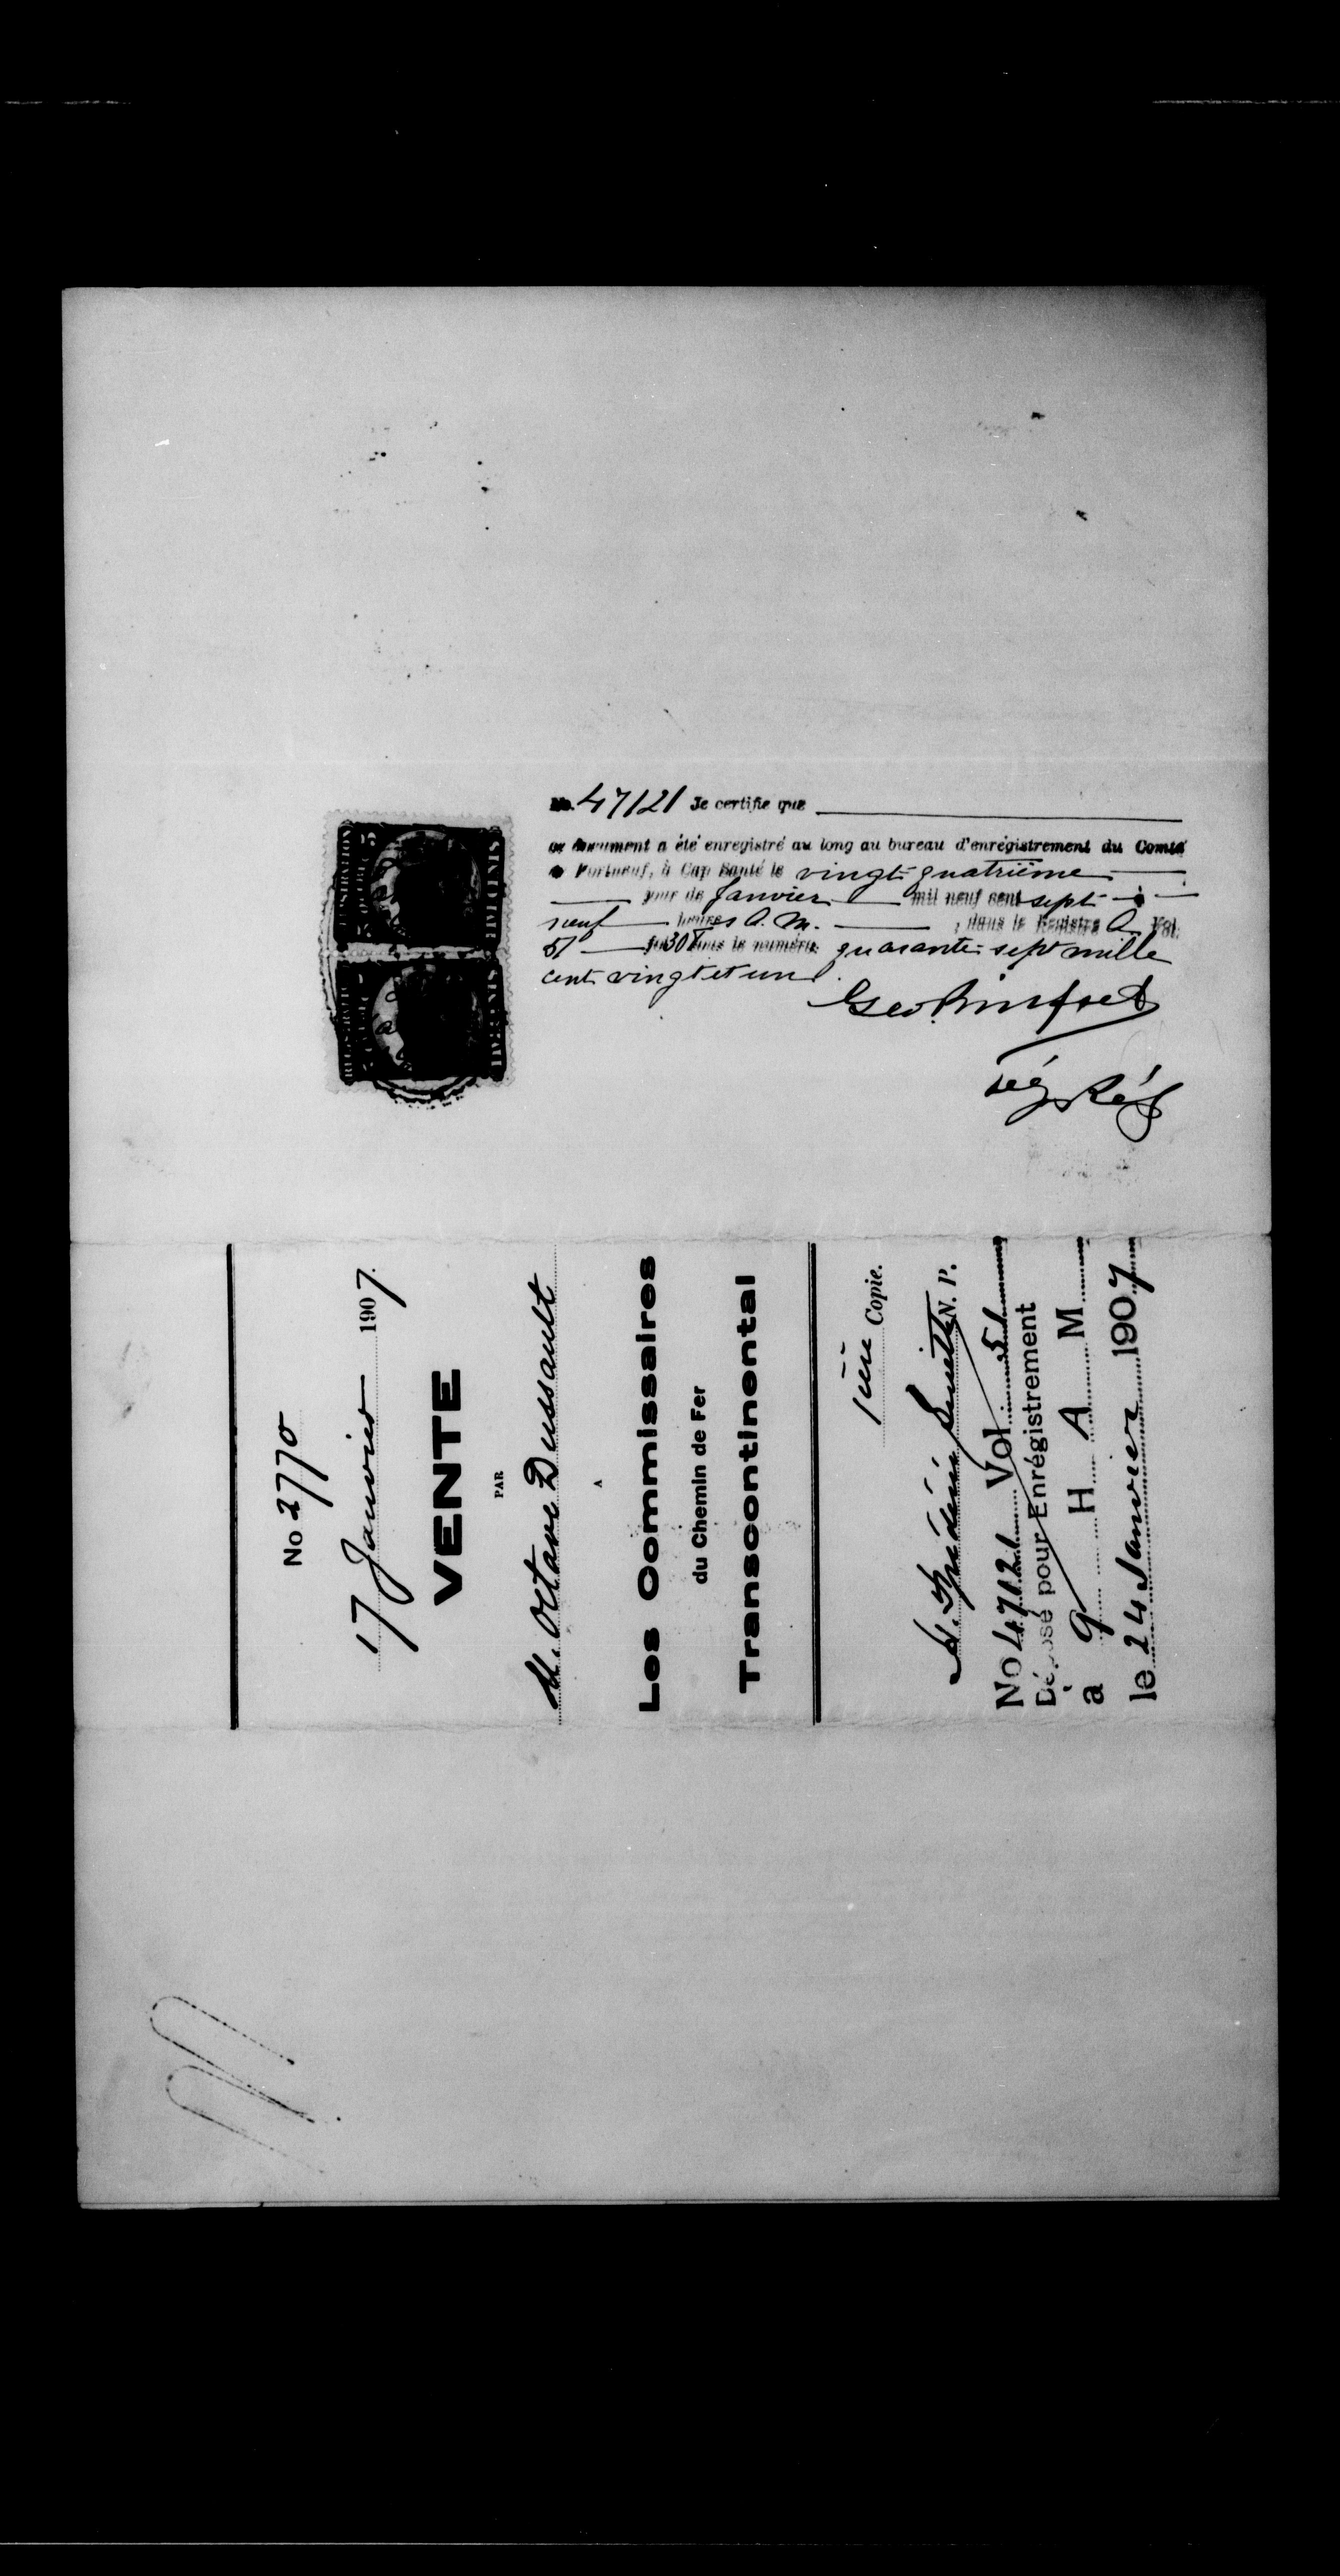 No. 47121 Je certifie que
ce document a été enregistré au long au bureau d'enrégistrement du Comté
de Portneuf, à Cap Santé le vingt-quatrième
jour de Janvier mil neuf cent sept à
neuf heures A. M. , dans le Registre A Vol.
51 sous le numéro quarante-sept mille
cent vingt et un.
REGISTRATION
QUEBEC
FIVE CENTS
5
REGISTRATION
FIVE CENTS
No 2770
17 Janvier 1907
VENTE
PAR
M. Octave Dussault
A
Les Commissaires
du Chemin de Fer
Transcontinental
1ère Copie.
N. P.
No 47121 Vol 51
Déposé pour Enrégistrement
à 9 H A M
le 24 Janvier 1907